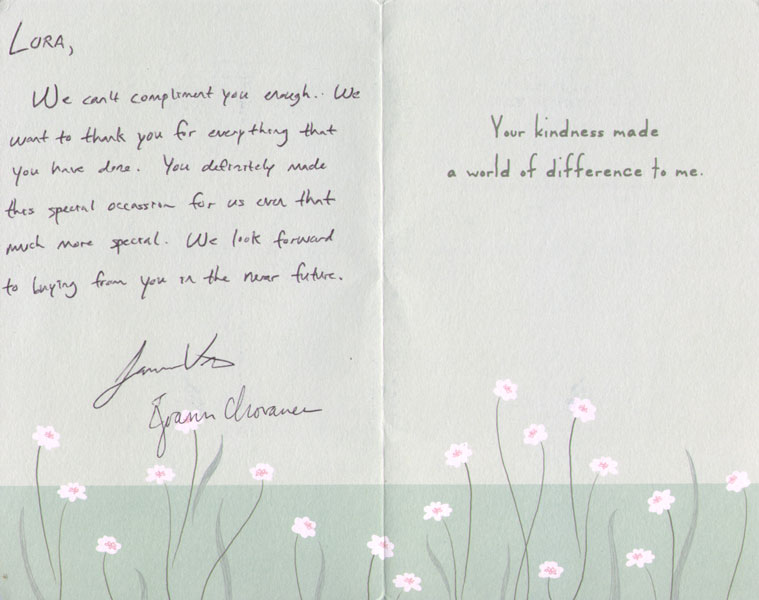 LORA,
We can't compliment you enough.. We
want to thank you for everything that
you have done. You definitely made
this special occassion for us even that
much more special. We look forward
to buying from you in the near future.
Joann Chovanec
Your kindness made
a world of difference to me.